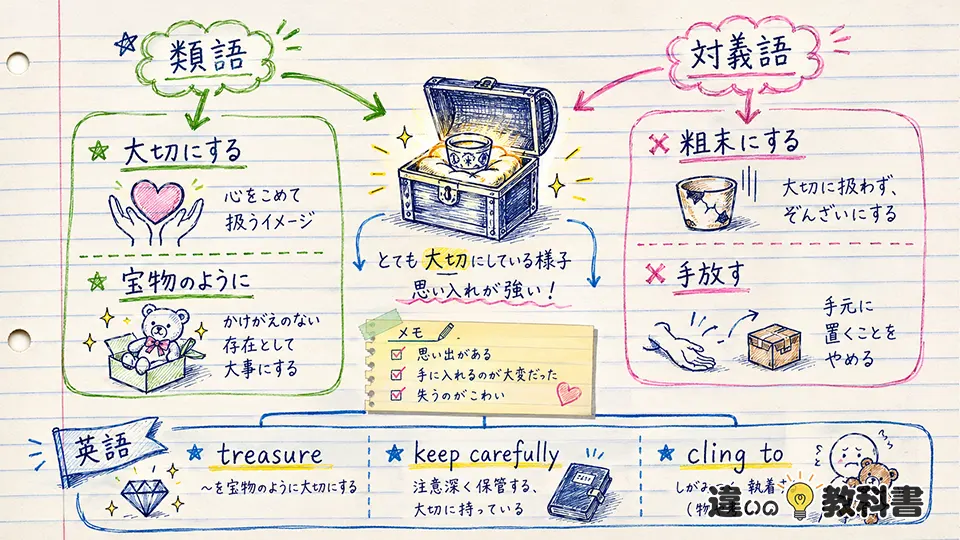 類語
対義語
大切にする
心をこめて
扱うイメージ
宝物のように
かけがえのない
存在として
大事にする
とても大切にしている様子
思い入れが強い!
メモ
思い出がある
手に入れるのが大変だった
失うのがこわい
粗末にする
大切に扱わず、
ぞんざいにする
手放す
手元に
置くことを
やめる
英語
treasure
〜を宝物のように大切にする
keep carefully
注意深く保管する、
大切に持っている
cling to
執着
違いの教科書